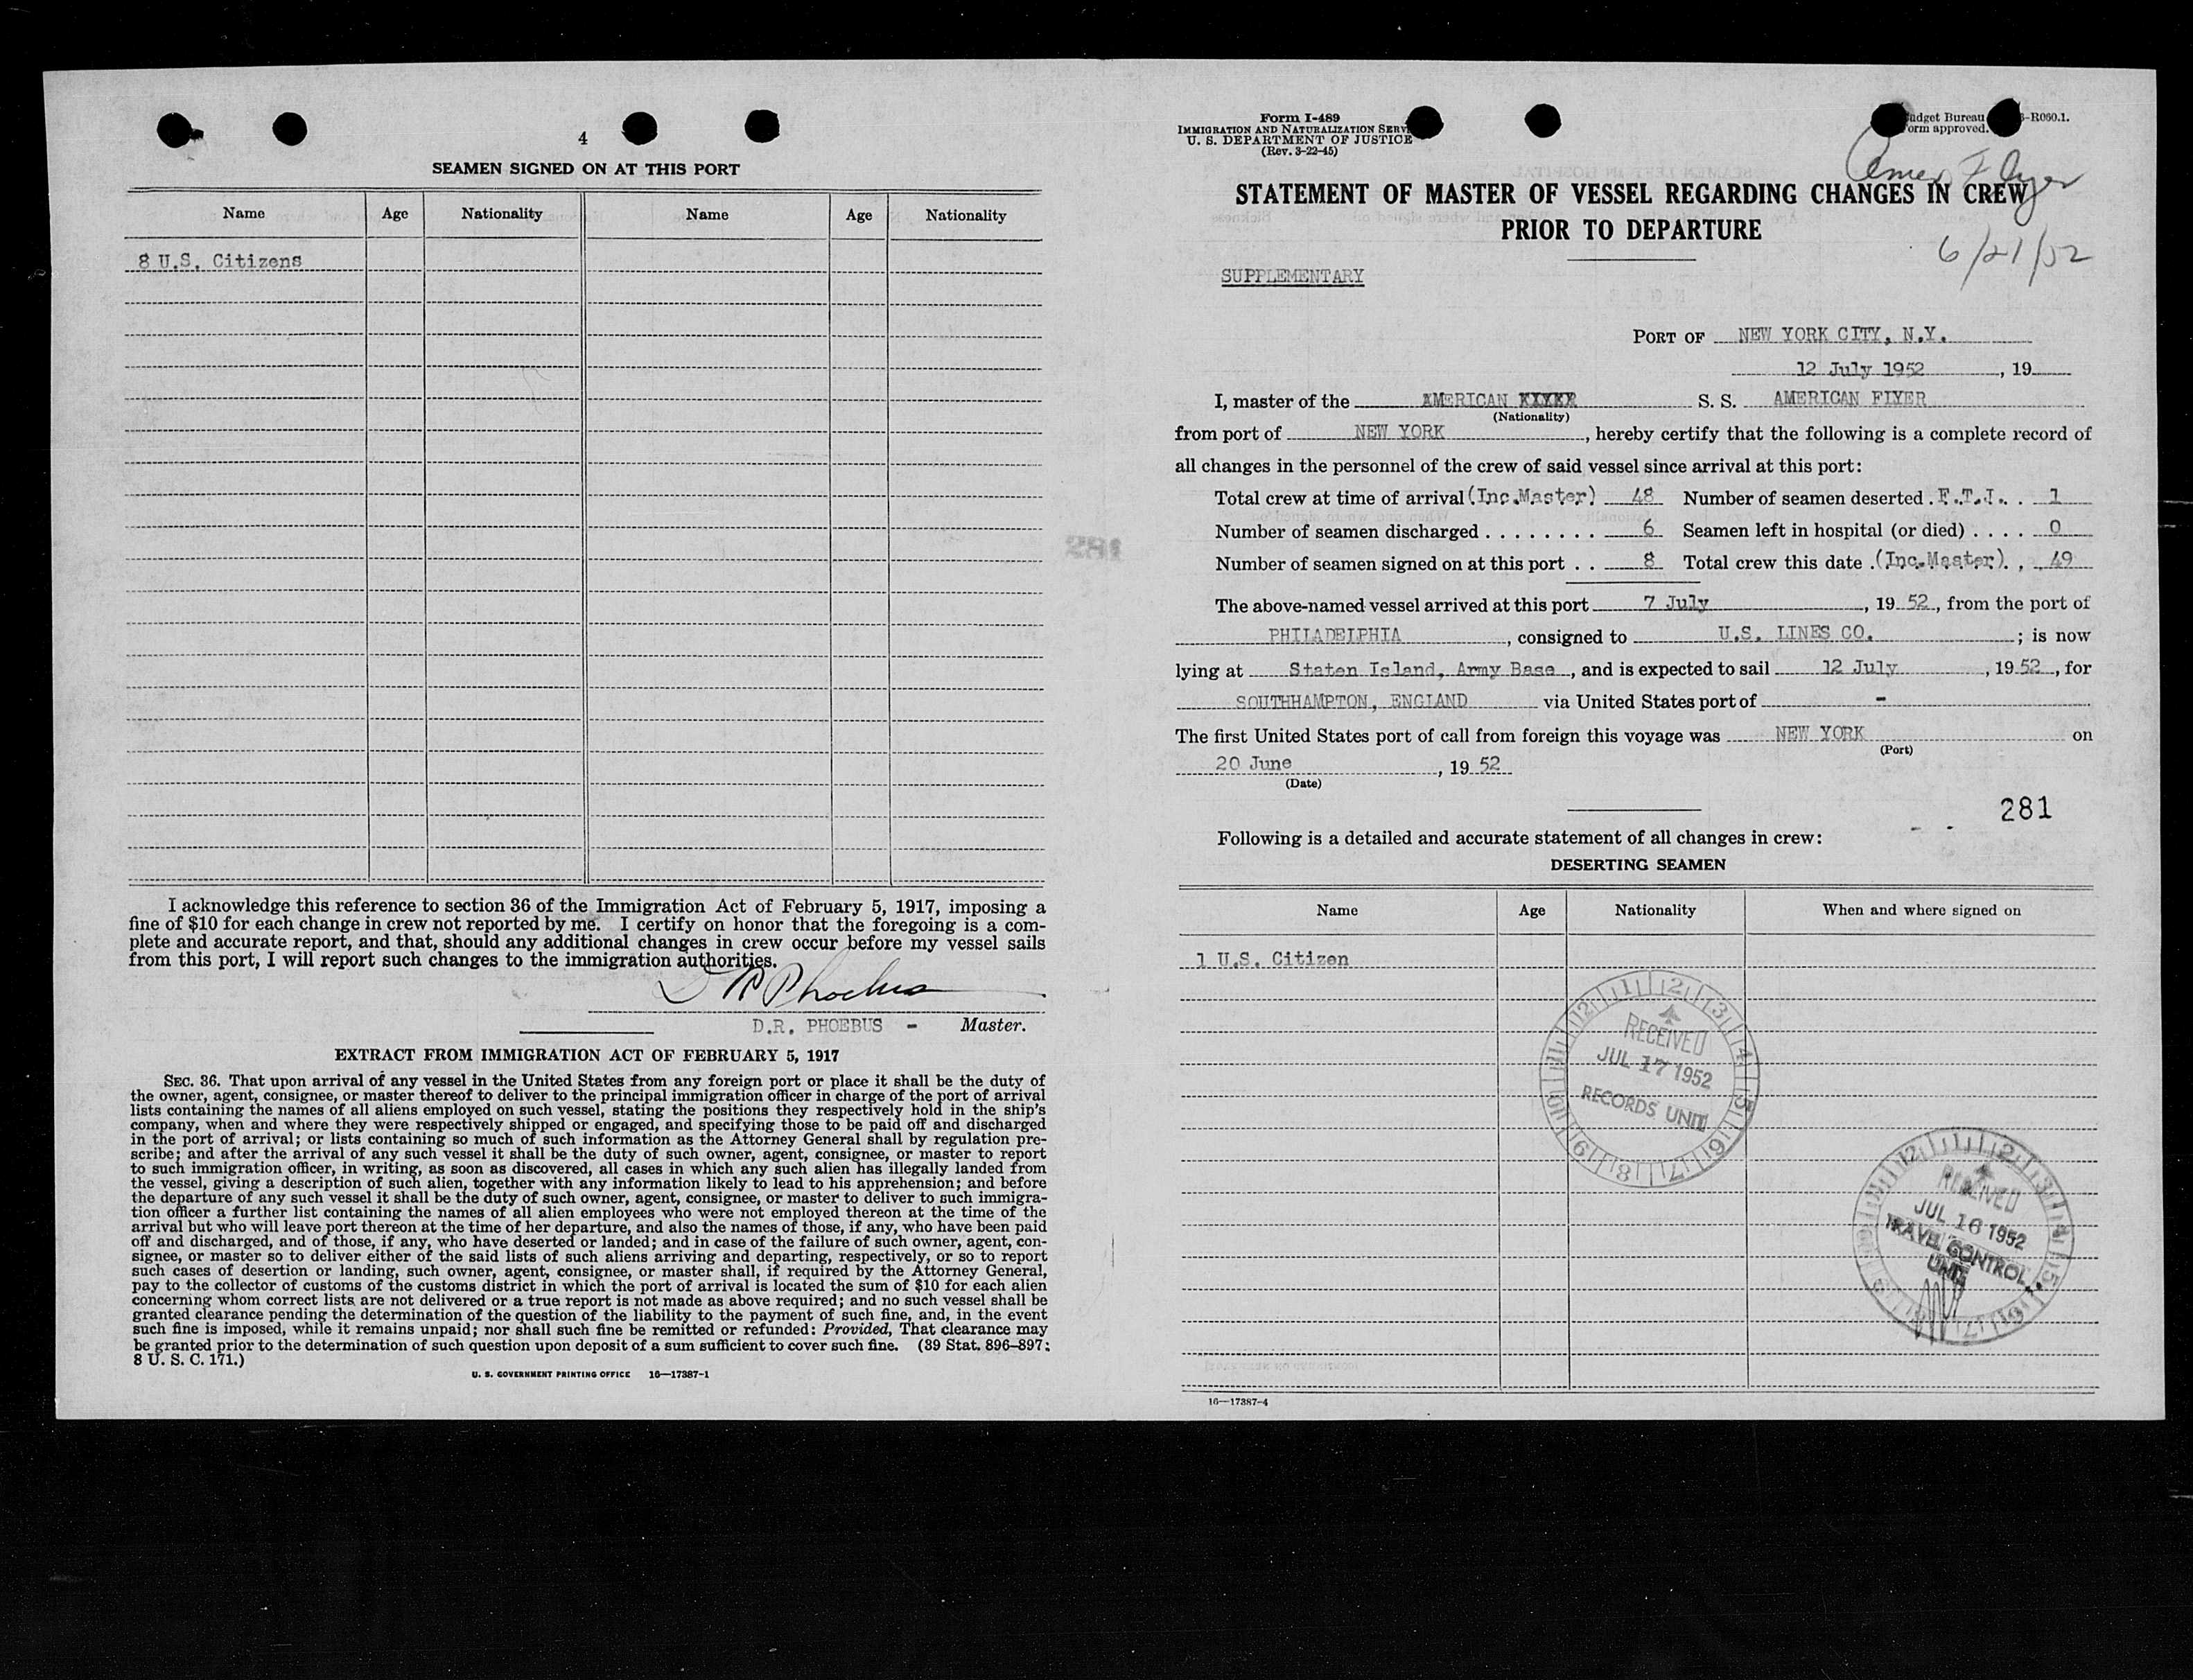 4
SEAMEN SIGNED ON AT THIS PORT
Name Age Nationality Name Age Nationality
8 U.S. Citizens
I acknowledge this reference to section 36 of the Immigration Act of February 5, 1917, imposing a
fine of $10 for each change in crew not reported by me. I certify on honor that the foregoing is a com-
plete and accurate report, and that, should any additional changes in crew occur before my vessel sails
from this port, I will report such changes to the immigration authorities.
D R Phoebus
D.R. PHOEBUS - Master.
EXTRACT FROM IMMIGRATION ACT OF FEBRUARY 5, 1917
SEC. 36. That upon arrival of any vessel in the United States from any foreign port or place it shall be the duty of
the owner, agent, consignee, or master thereof to deliver to the principal immigration officer in charge of the port of arrival
lists containing the names of all aliens employed on such vessel, stating the positions they respectively hold in the ship's
company, when and where they were respectively shipped or engaged, and specifying those to be paid off and discharged
in the port of arrival; or lists containing so much of such information as the Attorney General shall by regulation pre-
scribe; and after the arrival of any such vessel it shall be the duty of such owner, agent, consignee, or master to report
to such immigration officer, in writing, as soon as discovered, all cases in which any such alien has illegally landed from
the vessel, giving a description of such alien, together with any information likely to lead to his apprehension; and before
the departure of any such vessel it shall be the duty of such owner, agent, consignee, or master to deliver to such immigra-
tion officer a further list containing the names of all alien employees who were not employed thereon at the time of the
arrival but who will leave port thereon at the time of her departure, and also the names of those, if any, who have been paid
off and discharged, and of those, if any, who have deserted or landed; and in case of the failure of such owner, agent, con-
signee, or master so to deliver either of the said lists of such aliens arriving and departing, respectively, or so to report
such cases of desertion or landing, such owner, agent, consignee, or master shall, if required by the Attorney General,
pay to the collector of customs of the customs district in which the port of arrival is located the sum of $10 for each alien
concerning whom correct lists are not delivered or a true report is not made as above required; and no such vessel shall be
granted clearance pending the determination of the question of the liability to the payment of such fine, and, in the event
such fine is imposed, while it remains unpaid; nor shall such fine be remitted or refunded: Provided, That clearance may
be granted prior to the determination of such question upon deposit of a sum sufficient to cover such fine. (39 Stat. 896–897;
8 U. S. C. 171.)
U. S. GOVERNMENT PRINTING OFFICE 16—17387-1
Form I-489
IMMIGRATION AND NATURALIZATION SERV
U. S. DEPARTMENT OF JUSTICE
(Rev. 3-22-45)
udget Bureau -R060.1.
orm approved.
Amer Flyer
STATEMENT OF MASTER OF VESSEL REGARDING CHANGES IN CREW
PRIOR TO DEPARTURE
6/21/52
SUPPLEMENTARY
PORT OF NEW YORK CITY, N.Y.
12 July 1952, 19
I, master of the AMERICAN S. S. AMERICAN FLYER
(Nationality)
from port of NEW YORK, hereby certify that the following is a complete record of
all changes in the personnel of the crew of said vessel since arrival at this port:
Total crew at time of arrival (Inc.Master) 48 Number of seamen deserted . F.T.J. . 1
Number of seamen discharged . . . . . . . . 6 Seamen left in hospital (or died) . . . . 0
Number of seamen signed on at this port . . 8 Total crew this date . (Inc.Master). . 49
The above-named vessel arrived at this port 7 July, 19 52, from the port of
PHILADELPHIA, consigned to U.S. LINES CO.; is now
lying at Staten Island, Army Base, and is expected to sail 12 July, 19 52, for
SOUTHHAMPTON, ENGLAND via United States port of -
The first United States port of call from foreign this voyage was NEW YORK on
(Port)
20 June, 19 52
(Date)
281
Following is a detailed and accurate statement of all changes in crew:
DESERTING SEAMEN
Name Age Nationality When and where signed on
1 U.S. Citizen
RECEIVED
JUL 17 1952
RECORDS UNIT
RECEIVED
JUL 16 1952
TRAVEL CONTROL
UNIT
16—17387-4